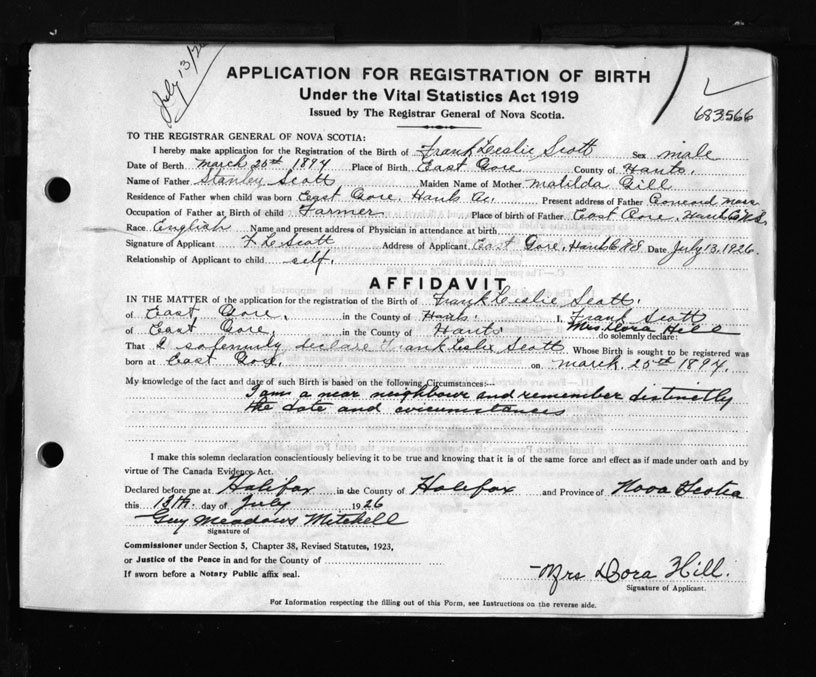 July 13/26
APPLICATION FOR REGISTRATION OF BIRTH
Under the Vital Statistics Act 1919
Issued by The Registrar General of Nova Scotia.
683566
TO THE REGISTRAR GENERAL OF NOVA SCOTIA:
I hereby make application for the Registration of the Birth of Frank Leslie Scott Sex male
Date of Berth March 25th 1894 Place of Birth East Gore County of Hants.
Name of Father Stanley Scott Maiden Name of Mother Matilda Gill
Residence of Father when child was born East Gore, Hants Co. Present address of Father Concord Mass
Occupation of Father at Birth of child Farmer Place of birth of Father East Gore, Hants Co N.S.
Race English Name and present address of Physician in attendance at birth
Signature of Applicant F L Scott Address of Applicant East Gore, Hants Co N.S. Date July 13, 1926.
Relationship of Applicant to child self.
AFFIDAVIT
IN THE MATTER of the application for the registration of the Birth of Frank Leslie Scott.
of East Gore, in the County of Hants. I, Frank Scott
Mrs Dora Hill
of East Gore, in the County of Hants do solemnly declare:
That I solemnly declare Frank Leslie Scott Whose Birth is sought to be registered was
born at East Gore. on March 25th 1894.
My knowledge of the fact and date of such Birth is based on the following Circumstances:—
I am a near neighbour and remember distinctly
the date and circumstances
I make this solemn declaration conscientiously believing it to be true and knowing that it is of the same force and effect as if made under oath and by
virtue of The Canada Evidence Act.
Declared before me at Halifax in the County of Halifax and Province of Nova Scotia
this 13th day of July 1926
Guy Meadows Mitchell
Signature of
Commissioner under Section 5, Chapter 38, Revised Statutes, 1923,
or Justice of the Peace in and for the County of
If sworn before a Notary Public affix seal.
Mrs Dora Hill.
Signature of Applicant.
For Information respecting the filling out of this Form, see Instructions on the reverse side.